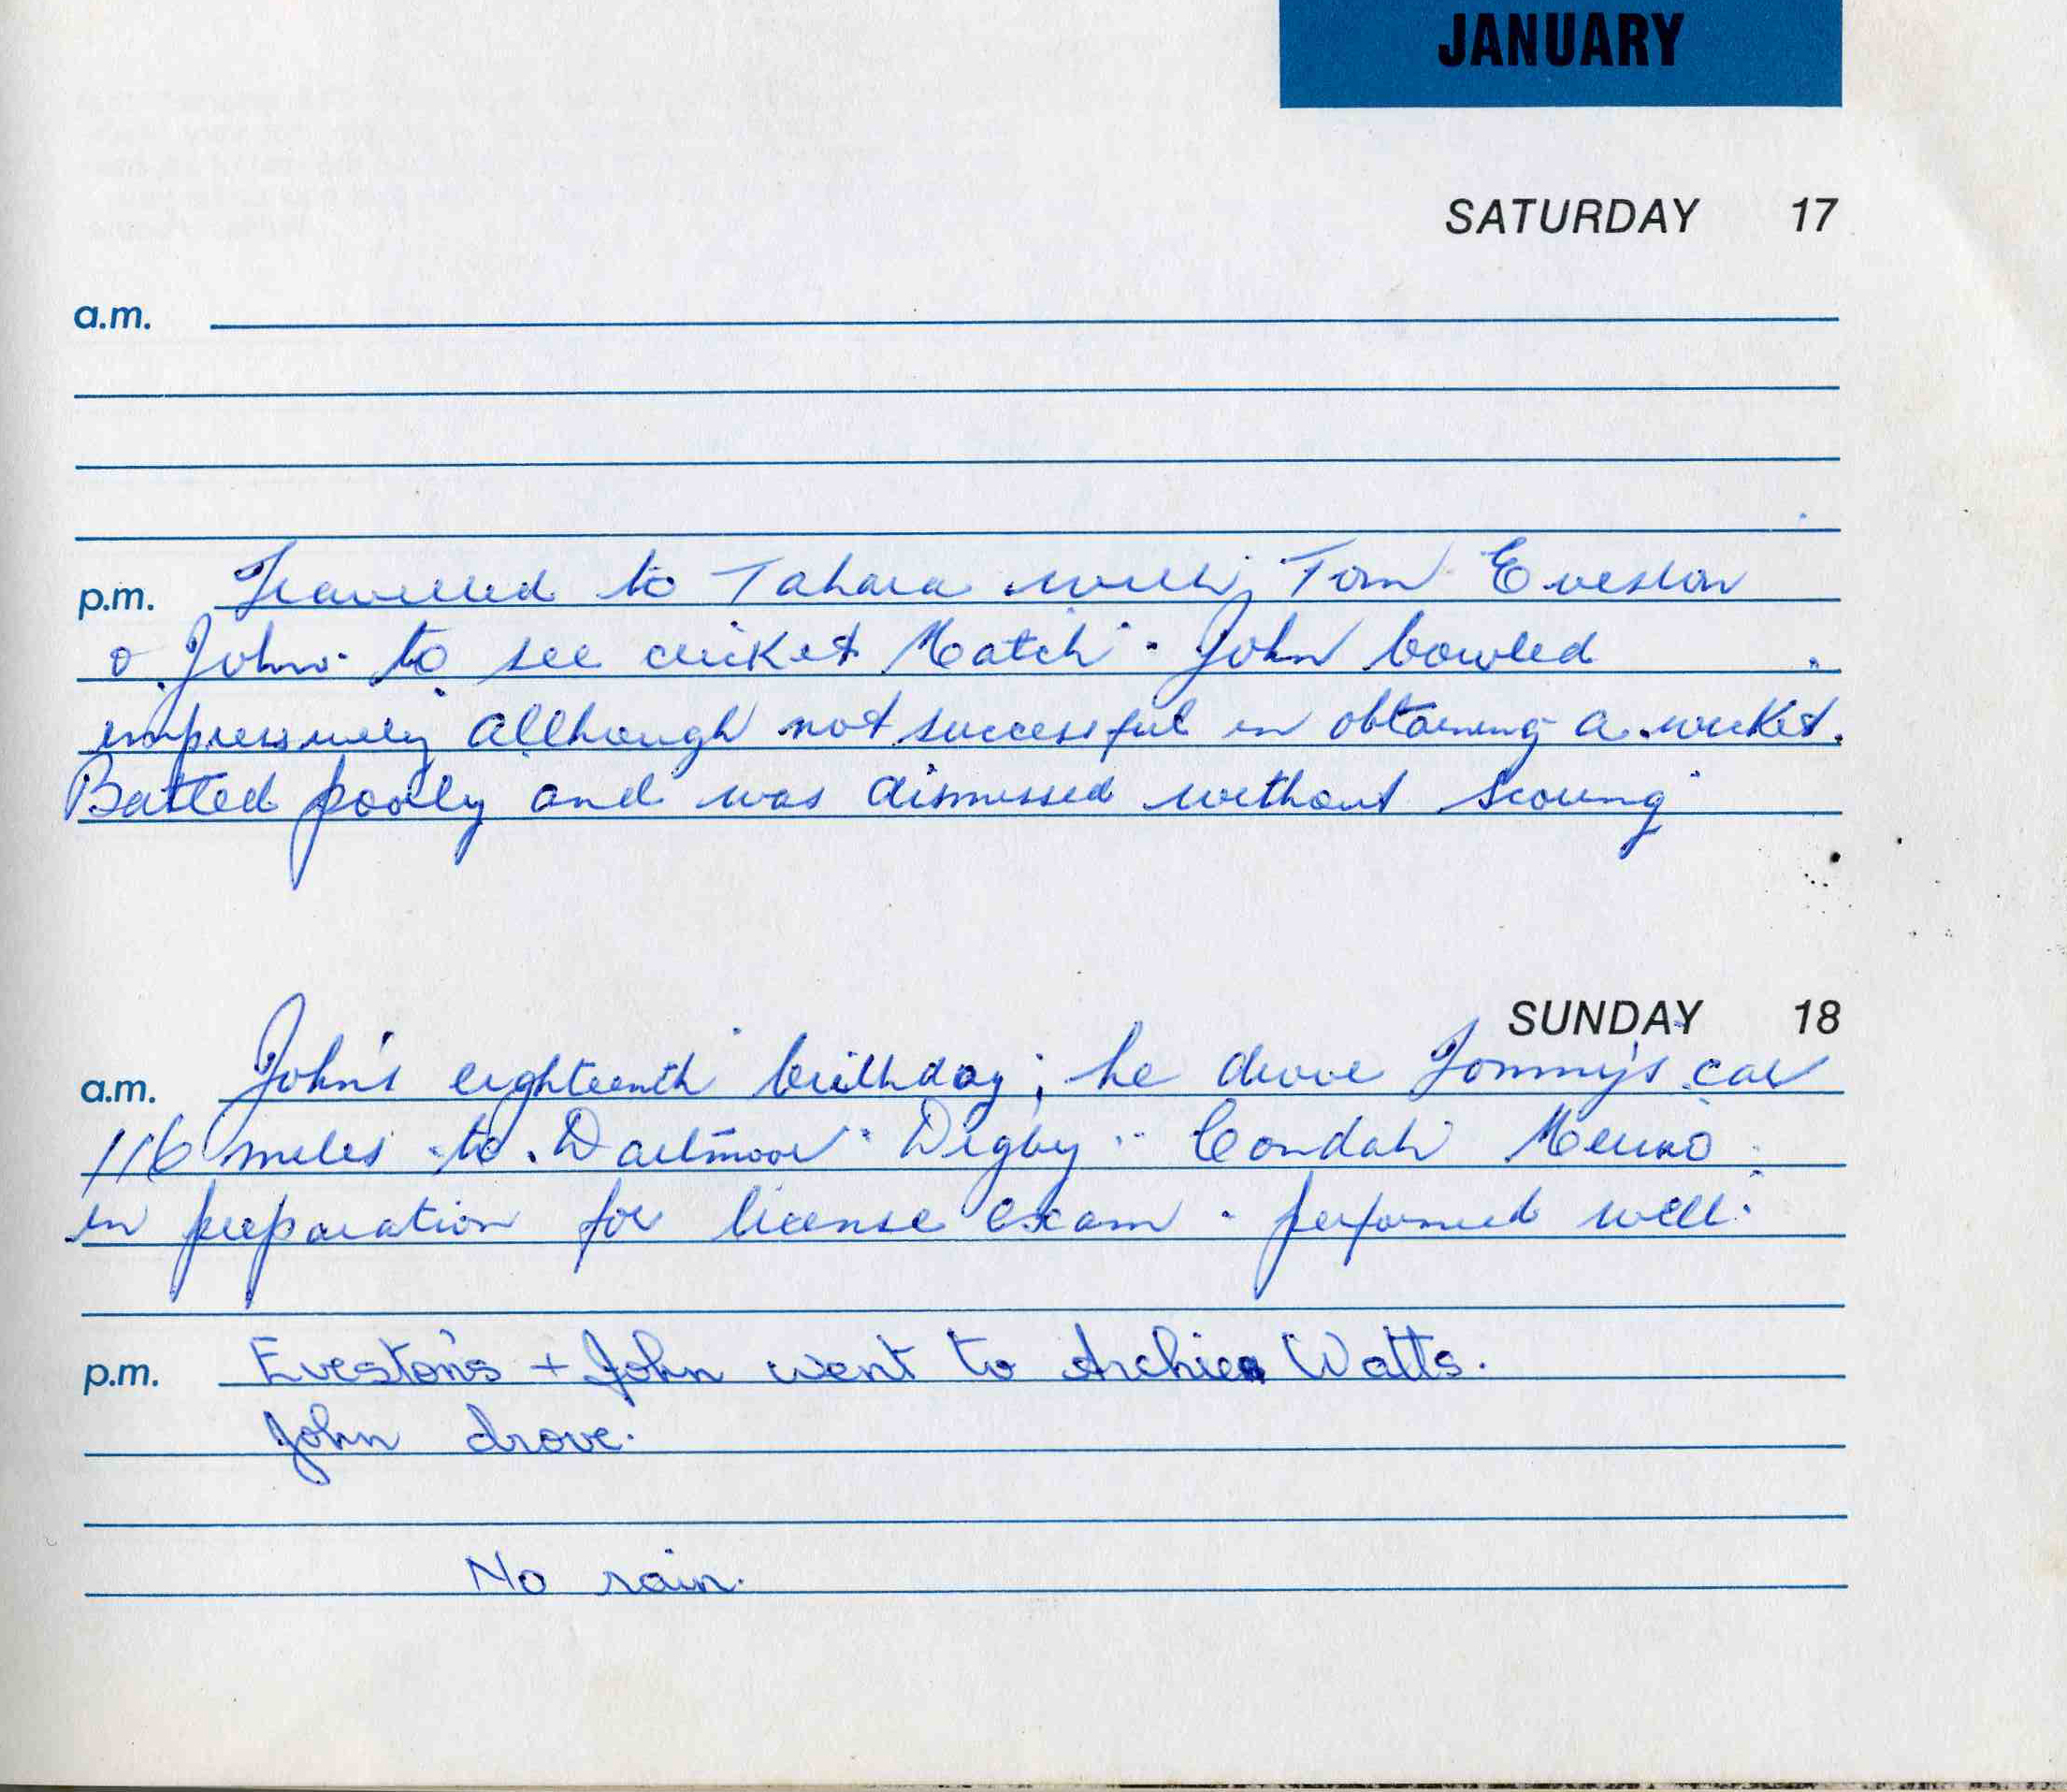 JANUARY
SATURDAY 17
a.m.
p.m. Travelled to Tahara with Tom Eveston
& John to see cricket Match. John bowled
impressively allthough not successful in obtaining a wicket.
Batted poorly and was dismissed without scoring
SUNDAY 18
a.m. John's eighteenth birthday; he drove Tommy's car
116 miles to Dartmoor Digby Condah Merino
in preparation for license exam. performed well.
p.m. Eveston's + John went to Archie Watts.
John drove.
No rain.